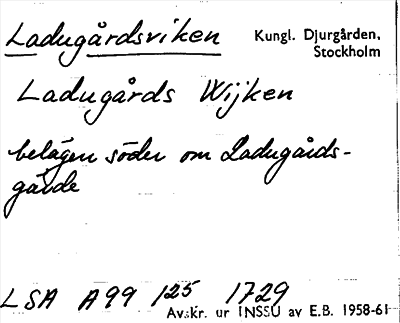 Ladugårdsviken
Kungl. Djurgården,
Stockholm
Ladugårds Wijken
belägen söder om Ladugårds-
gärde
LSA A99 125 1729
Avskr. ur INSSU av E.B. 1958-61